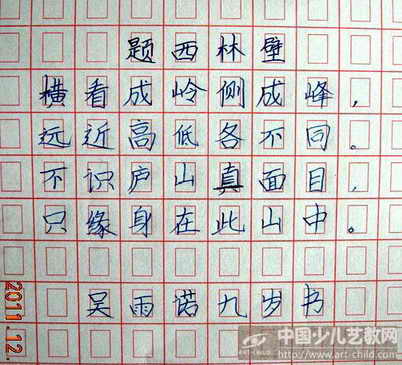 题西林壁
横看成岭侧成峰，
远近高低各不同。
不识庐山真面目，
只缘身在此山中。
吴雨诺九岁书
2011.12.
中国少儿艺教网
http://www.art-child.com